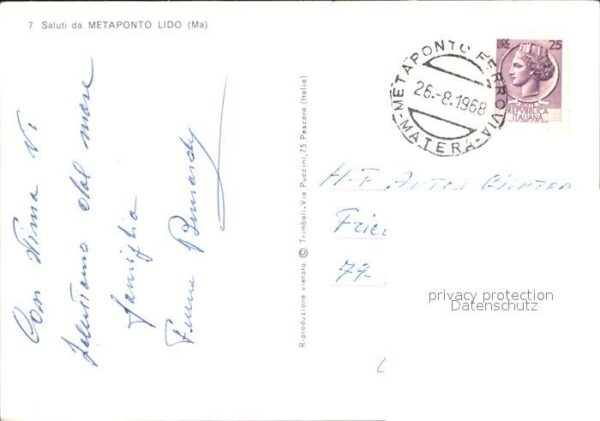 7 Saluti da METAPONTO LIDO (Ma)
Con stima Vi
salutiamo dal mare
famiglia
Riproduzione vietata © Trimboli-Via Puccini,75 Pescara (Italia)
METAPONTO FERROVIA
26.-8.1968
-MATERA-
LIRE 25
REPVBBLICA
ITALIANA
79
privacy protection
Datenschutz